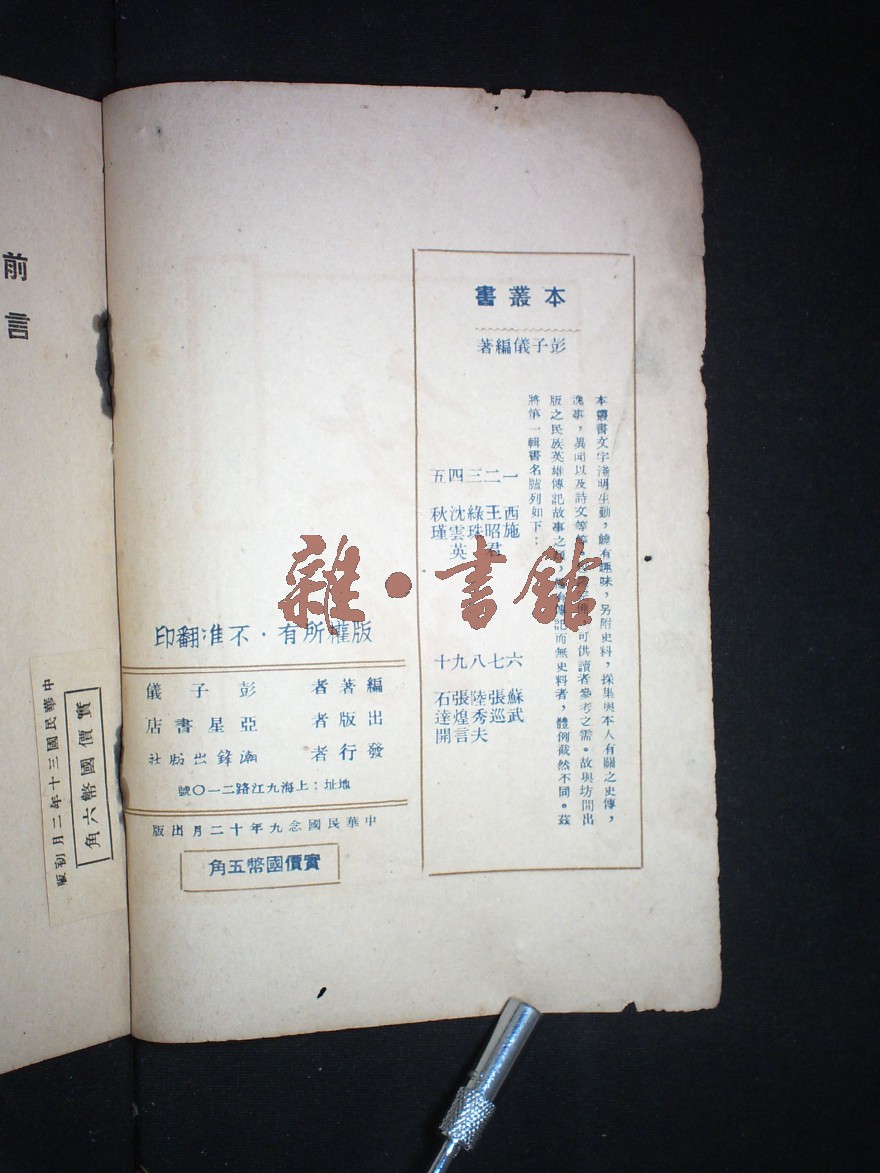 本叢書
彭子儀編著
本叢書文字淺明生動，饒有趣味，另附史料，採集與本人有關之史傳，
逸事，異聞以及詩文等等，可供讀者參考之需。故與坊間出
版之民族英雄傳記故事之，有傳記而無史料者，體例截然不同。茲
將第一輯書名臚列如下：
一 西施
二 王昭君
三 綠珠
四 沈雲英
五 秋瑾
六 蘇武
七 張巡
八 陸秀夫
九 張煌言
十 石達開
版權所有·不准翻印
編著者 彭子儀
出版者 亞星書店
發行者 潮鋒出版社
地址：上海九江路二一〇號
中華民國念九年十二月出版
實價國幣五角
前言
實價國幣六角
中華民國三十年二月初版
雜·書館